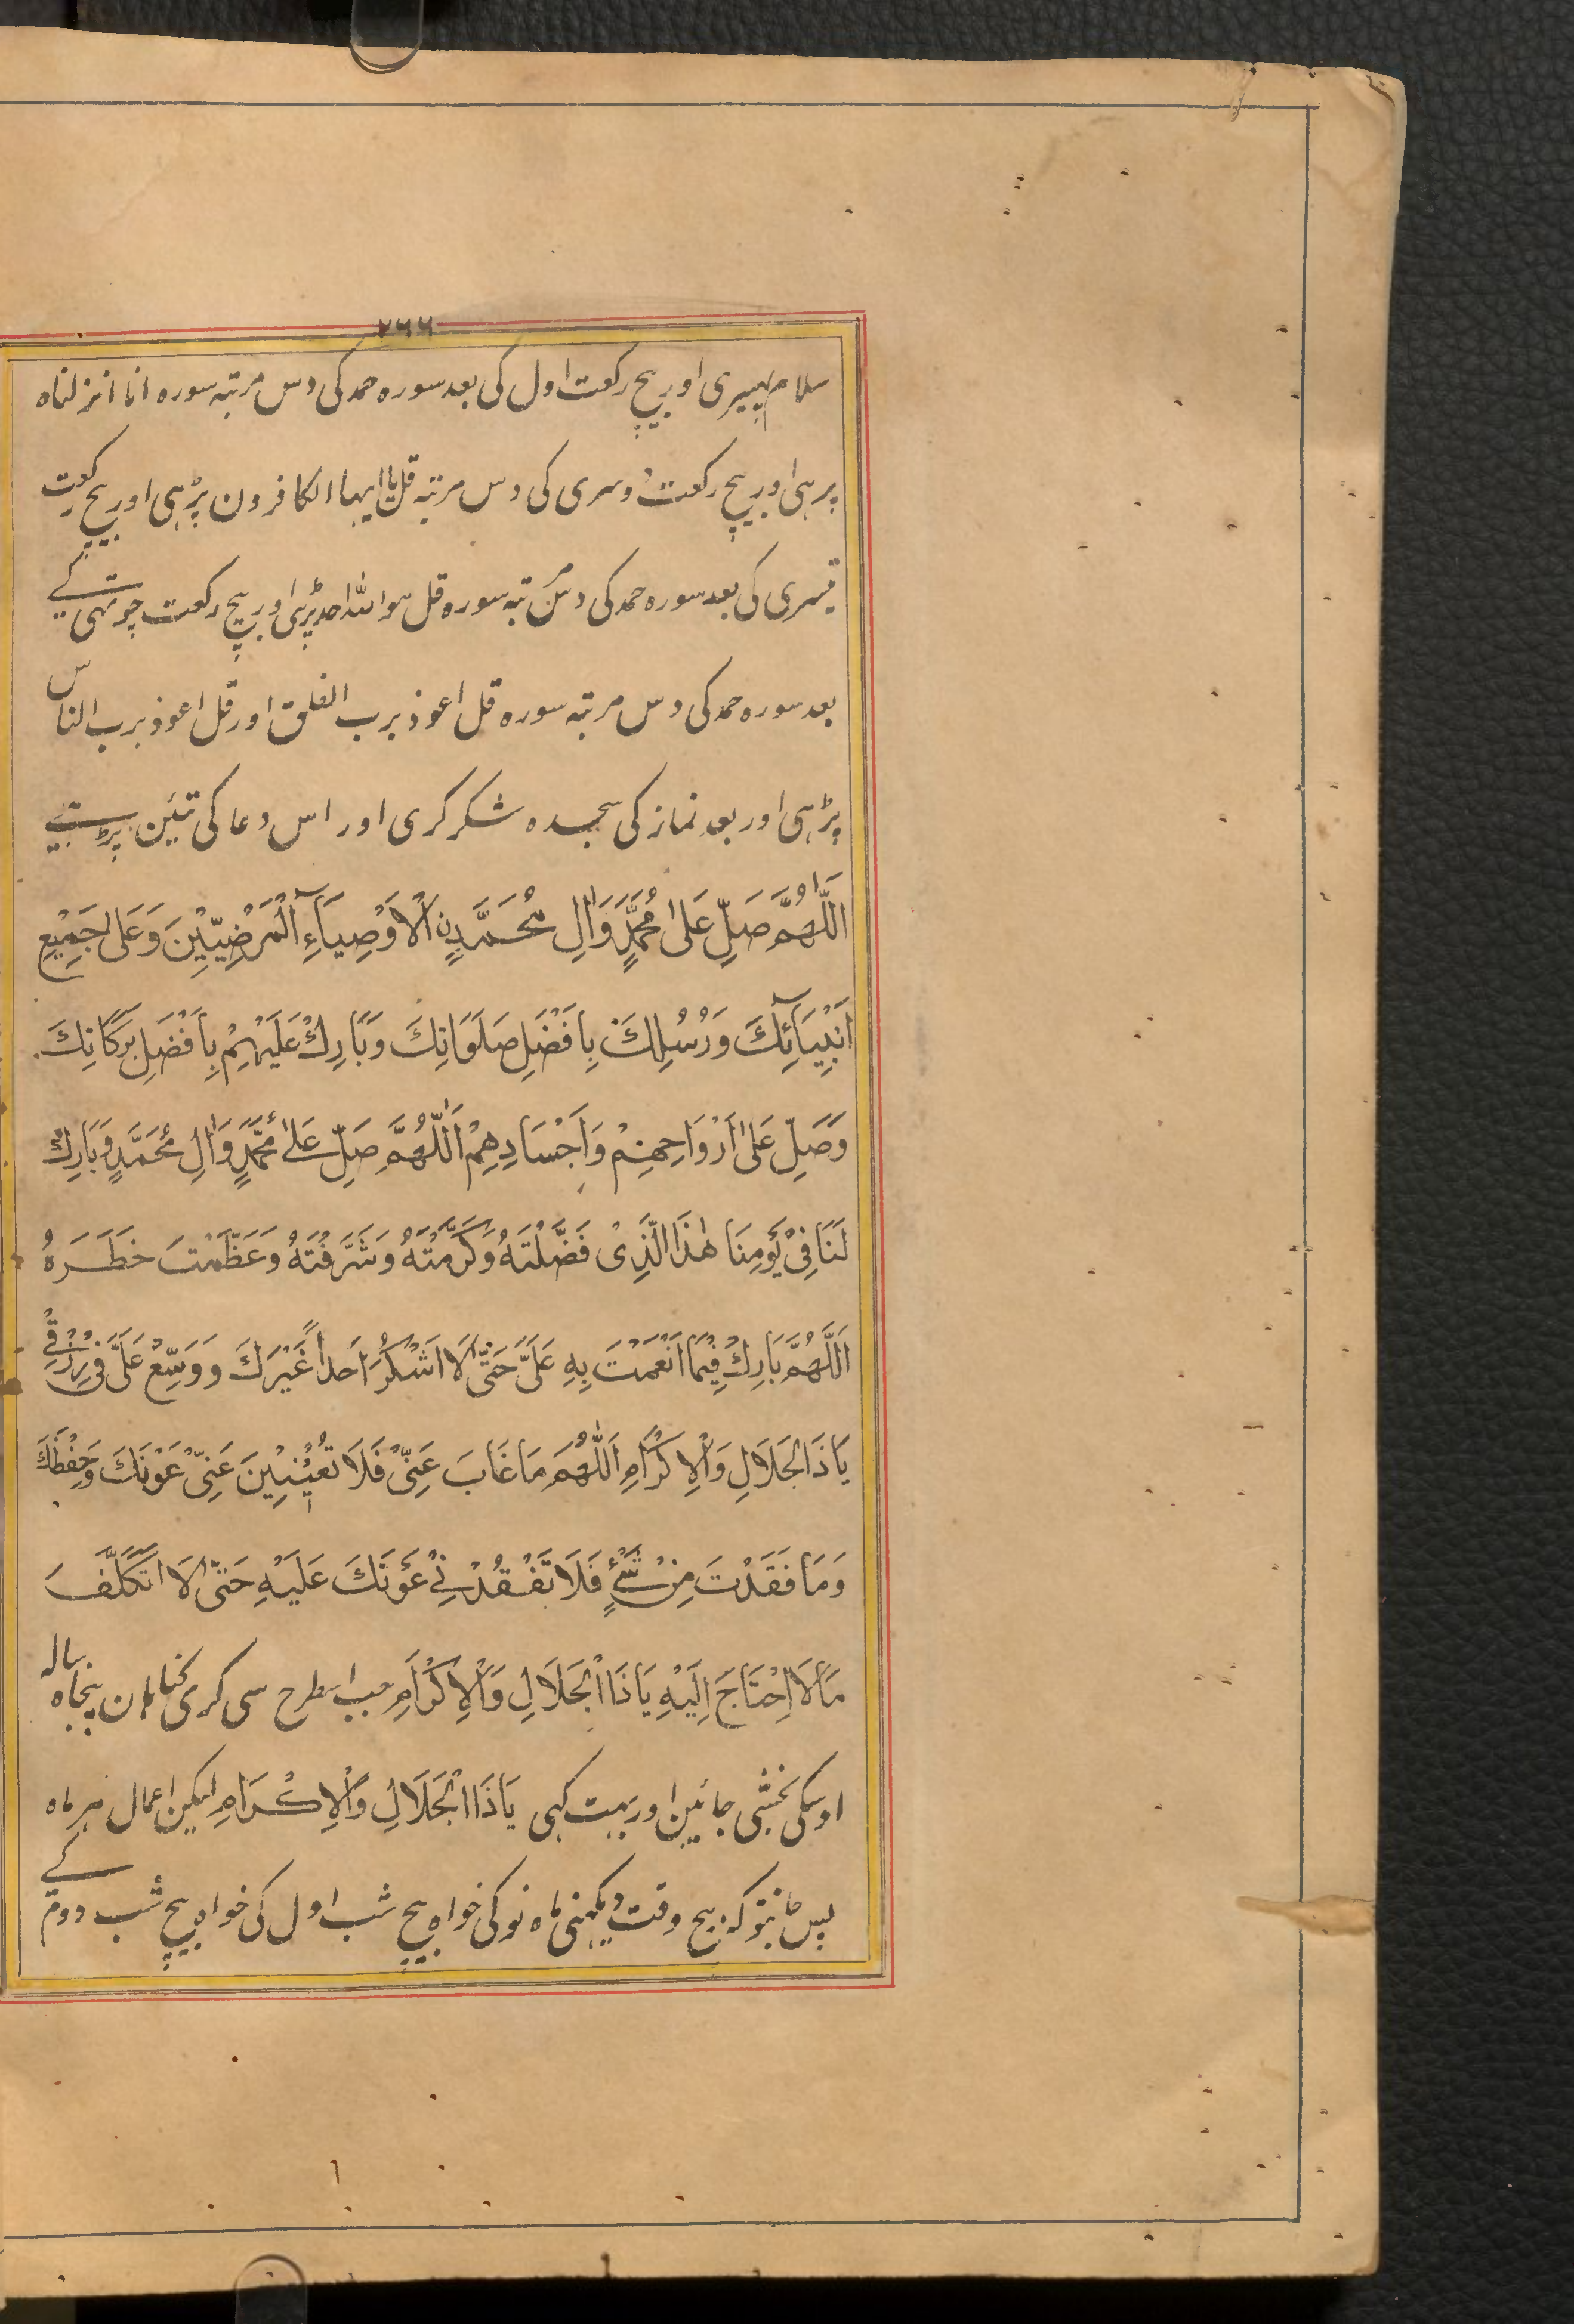 ۷۶۶
سلام پہیری اور بیچ رکعت اول کی بعد سورہ حمد کی دس مرتبہ سورہ انا انزلناہ
پڑہی اور بیچ رکعت دوسری کی دس مرتبہ قل یا ایہا الکافرون پڑہی اور بیچ رکعت
تیسری کی بعد سورہ حمد کی دس مرتبہ سورہ قل ہو اللہ احد پڑہی اور بیچ رکعت چوتہی کے
بعد سورہ حمد کی دس مرتبہ سورہ قل اعوذ برب الفلق اور قل اعوذ برب الناس
پڑہی اور بعد نماز کی سجدہ شکر کری اور اس دعا کی تئین پڑہے
اَللّٰهُمَّ صَلِّ عَلىٰ مُحَمَّدٍ وَاٰلِ مُحَمَّدٍ نِ الْاَوْصِيَآءِ الْمَرْضِيِّيْنَ وَعَلىٰ جَمِيْعِ
اَنْبِيَآئِكَ وَرُسُلِكَ بِاَفْضَلِ صَلَوَاتِكَ وَبَارِكْ عَلَيْهِمْ بِاَفْضَلِ بَرَكَاتِكَ
وَصَلِّ عَلىٰ اَرْوَاحِهِمْ وَاَجْسَادِهِمْ اَللّٰهُمَّ صَلِّ عَلىٰ مُحَمَّدٍ وَاٰلِ مُحَمَّدٍ وَبَارِكْ
لَنَا فِيْ يَوْمِنَا هٰذَا الَّذِيْ فَضَّلْتَهُ وَكَرَّمْتَهُ وَشَرَّفْتَهُ وَعَظَّمْتَ خَطَرَهُ
اَللّٰهُمَّ بَارِكْ فِيْمَا اَنْعَمْتَ بِهِ عَلَيَّ حَتّٰى لَا اَشْكُرَ اَحَداً غَيْرَكَ وَوَسِّعْ عَلَيَّ فِيْ رِزْقِيْ
يَاذَا الْجَلَالِ وَالْاِكْرَامِ اَللّٰهُمَّ مَا غَابَ عَنِّيْ فَلَا تُغَيِّبَنَّ عَنِّيْ عَوْنَكَ وَحِفْظَكَ
وَمَا فَقَدْتَ مِنْ شَيْءٍ فَلَا تَفْقُدْنِيْ عَوْنَكَ عَلَيْهِ حَتّٰى لَا اَتَكَلَّفَ
مَا لَا اَحْتَاجَ اِلَيْهِ يَا ذَا الْجَلَالِ وَالْاِكْرَامِ جب اسطرح سی کری گناہان پنجاہ سالہ
اوسکی بخشی جائین اور بہت کہی يَا ذَا الْجَلَالِ وَالْاِكْرَامِ لیکن اعمال ہر ماہ کے
پس کہ بیچ وقت دیکہنی ماہ نو کی خواہ بیچ شب اول کی خواہ بیچ شب دوم